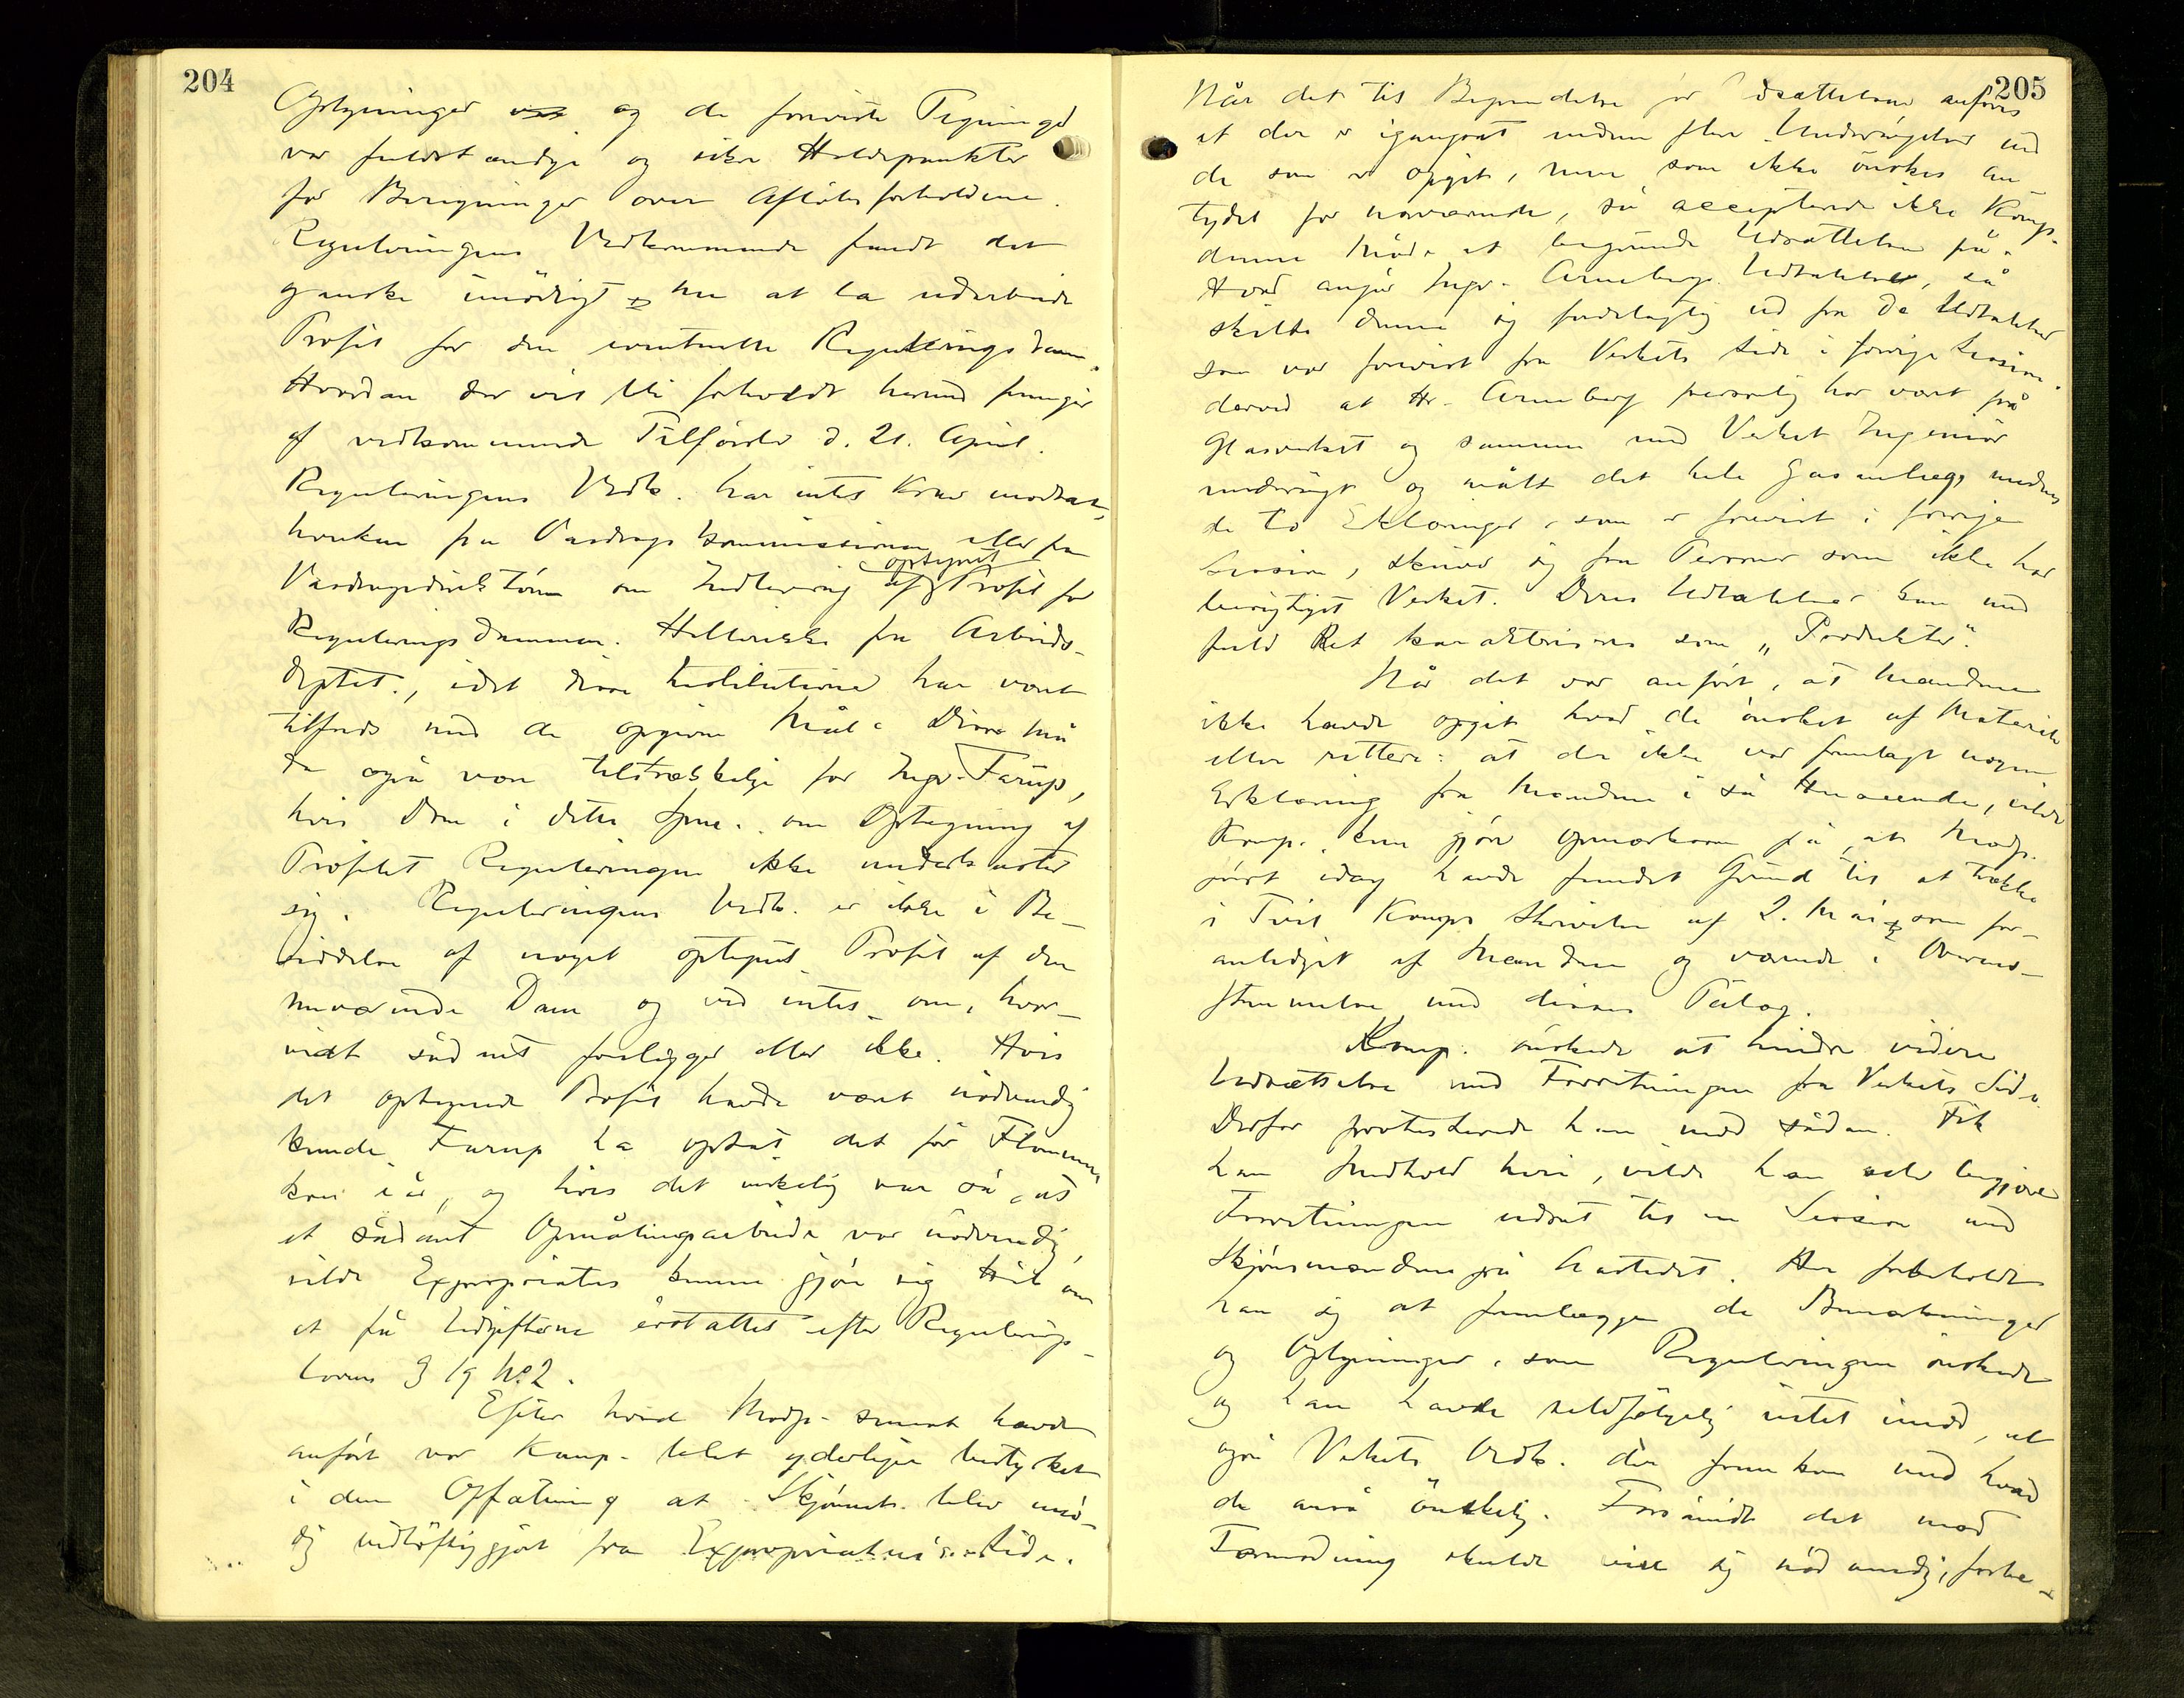 204
Oplysninger og de foreviste Tegninger
var fuldstændige og sikre Holdepunkter
for Beregninger over Afløbsforholdene.
Reguleringens Vedkommende fandt det
ganske unødigt nu at la utarbeide
Profil for den eventuelle Reguleringsdam.
Hvordan der vil bli forholdt hermed fremgår
af vedkommende Tilførsler d. 21. April.
Reguleringens Vedk. har intet Krav modtat,
hverken fra Vasdragskommissionen eller fra
Vasdragsdirektøren om Indlevering af optegnet Profil for
Reguleringsdammen. Hellerikke fra Arbeids-
deptet., idet disse Institutioner har været
tilfreds med de opgivne Mål. Disse må
da også være tilstrækkelige for Ingr. Farup,
hvis Dom i dette Spm. om Optegning af
Profilet Reguleringen ikke underkaster
sig. Reguleringens Vedk. er ikke i Be-
siddelse af noget optegnet Profil af den
nuværende Dam og ved intet om, hvor-
vidt sådant foreligger eller ikke. Hvis
det optegnede Profil havde været nødvendig
kunde Farup ha optat det før Flommen
kom iår, og hvis det virkelig var så, at
et sådant Opmålingsarbeide var nødvendig,
vilde Expropriatus kunne gjøre sig Håb om
at få Udgifterne erstattet efter Regulerings-
lovens § 19 No 2.
Efter hvad Modp. senest havde
anført var Komp. blet yderligere bestyrket
i den Opfatning at Skjønnet blev unød-
dig vidtløftiggjort fra Expropriatus's Side.
205
Når det til Begrundelse for Udsættelsen anføres
at der er igangsat endnu flere Undersøgelser end
de som er opgit, men som ikke ønskes an-
tydet for nærværende, så accepterede ikke Komp.
denne Måde at begrunde Udsættelsen på.
Hvad angår Ingr. Arneberg Udtalelse, så
skilte denne sig fordelagtig ud fra de Udtalelser
som var forevist fra Verkets Side i forrige Session,
derved at Hr. Arneberg personlig har været på
Glasverket og sammen med Verkets Ingeniør
undersøgt og målt det hele Gasanlæg, medens
de to Erklæringer, som er forevist i forrige
Session, skriver sig fra Personer som ikke har
besigtiget Verket. Deres Udtalelser kan med
fuld Ret karakteriseres som „Produkter“.
Når det var anført, at Mændene
ikke havde opgit hvad de ønsket af Materiale
eller rettere: at der ikke var fremlagt nogen
Erklæring fra Mændene i så Henseende, vilde
Komp. kun gjøre opmærksom på, at Modp.
først idag havde fundet Grund til at trække
i Tvil Komps Skrivelse af 2. Mai som for-
anlediget af Mændene og værende i Overens-
stemmelse med disses Pålæg.
Komp. ønskede at hindre videre
Udsættelse med Forretningen fra Verkets Side.
Derfor protesterede han mod sådan. Fik
han Medhold heri, vilde han selv begjære
Forretningen udsat til en Session med
Skjønsmændene på Åstedet. Her forbeholdt
han sig at fremlægge de Bemærkninger
og Oplysninger, som Reguleringen ønskede
og han havde selvfølgelig intet imod, at
også Verkets Vedk. der fremkom med hvad
de anså ønskelig. Forsåvidt det mod
Formodning skulde vise sig nødvendig, forbe-